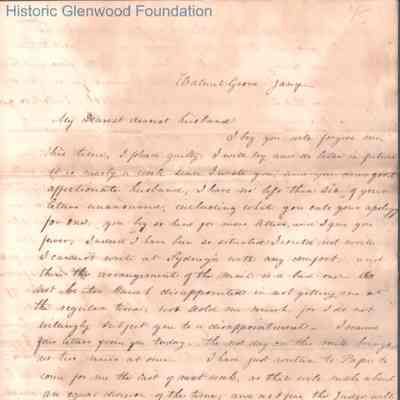 Historic Glenwood Foundation
Walnut Grove Jany
My Dearest dearest husband
I beg you will forgive me
this time, I plead guilty, I will try and do better in future
It is nearly a week since I wrote you, and you my good
affectionate husband, I have no less than six of your
letters unanswered, including what you call your apology
for one. you beg so hard for more letters, and I give you
fewer, Indeed I have been so situated I could not write
I cannot write at with any comfort. and
then the arrangement of the mail is a bad one
disappointed in not getting one at
the regular time, much, for I do not
willingly subject you to a disappointment. I received
four letters from you today. the
two mails at once. I have just written to Papa to
come for me the last of next week, as this will make about
an equal division of the time, and not give the Judge with